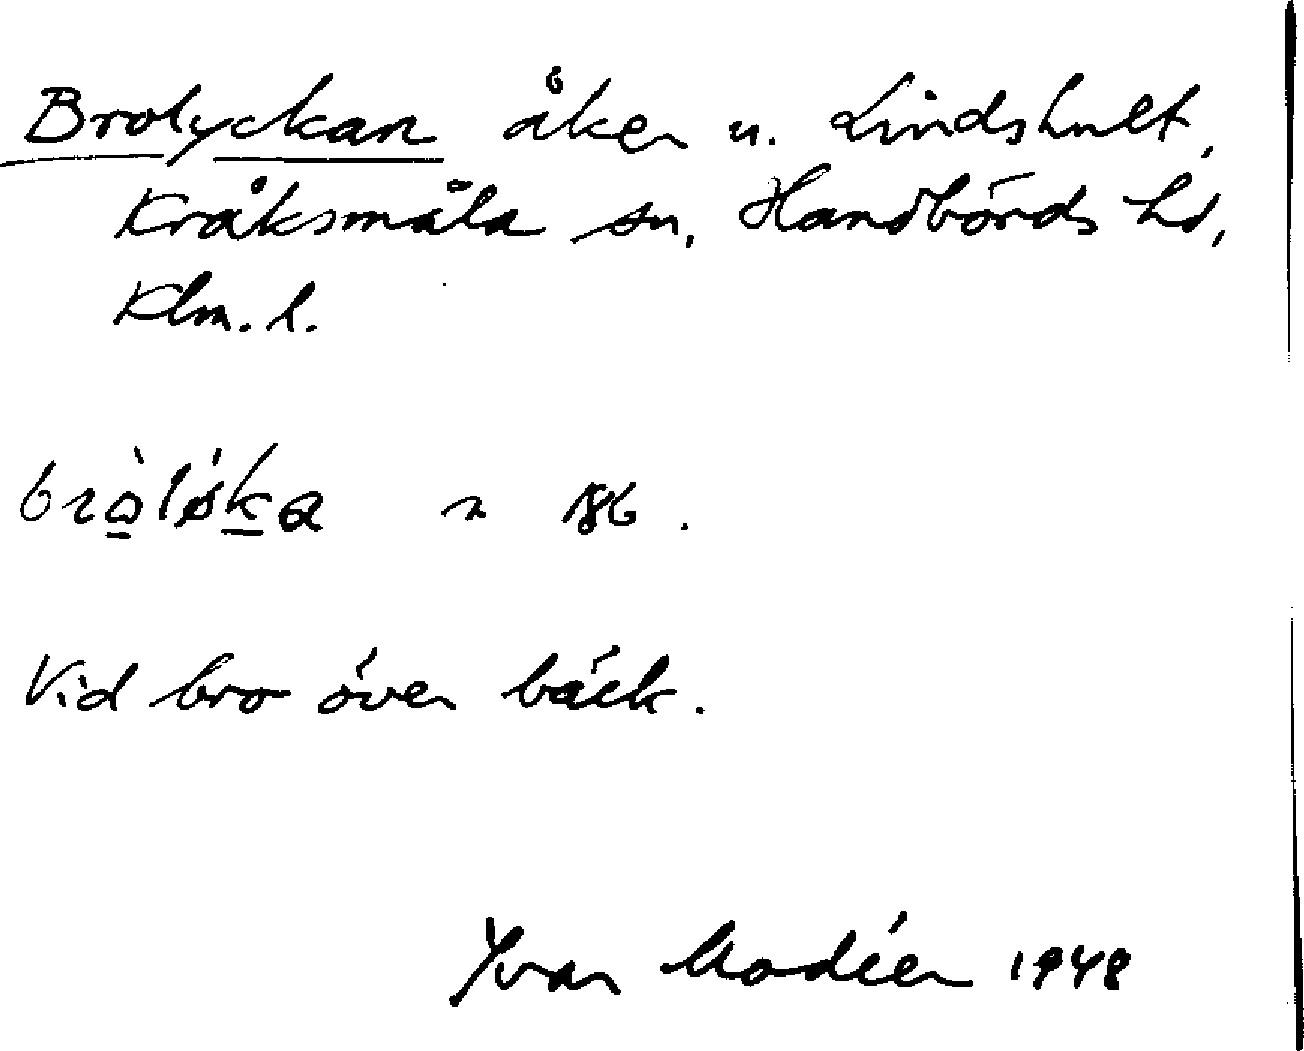 Brolyckan åker u. Lindshult,
Kråksmåla sn, Handbörds hd,
Klm. l.
Vid bro över bäck.
Yvar Modéer 1948